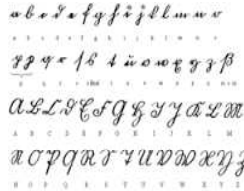 a b c d e f g h i j k l m n o
a b c d e f g h i j k l m n o
p q r s t u v w x y z ß
p q r s t u v w x y z
A B C D E F G H I J K L M
A B C D E F G H I J K L M
N O P Q R S T U V W X Y Z
N O P Q R S T U V W X Y Z